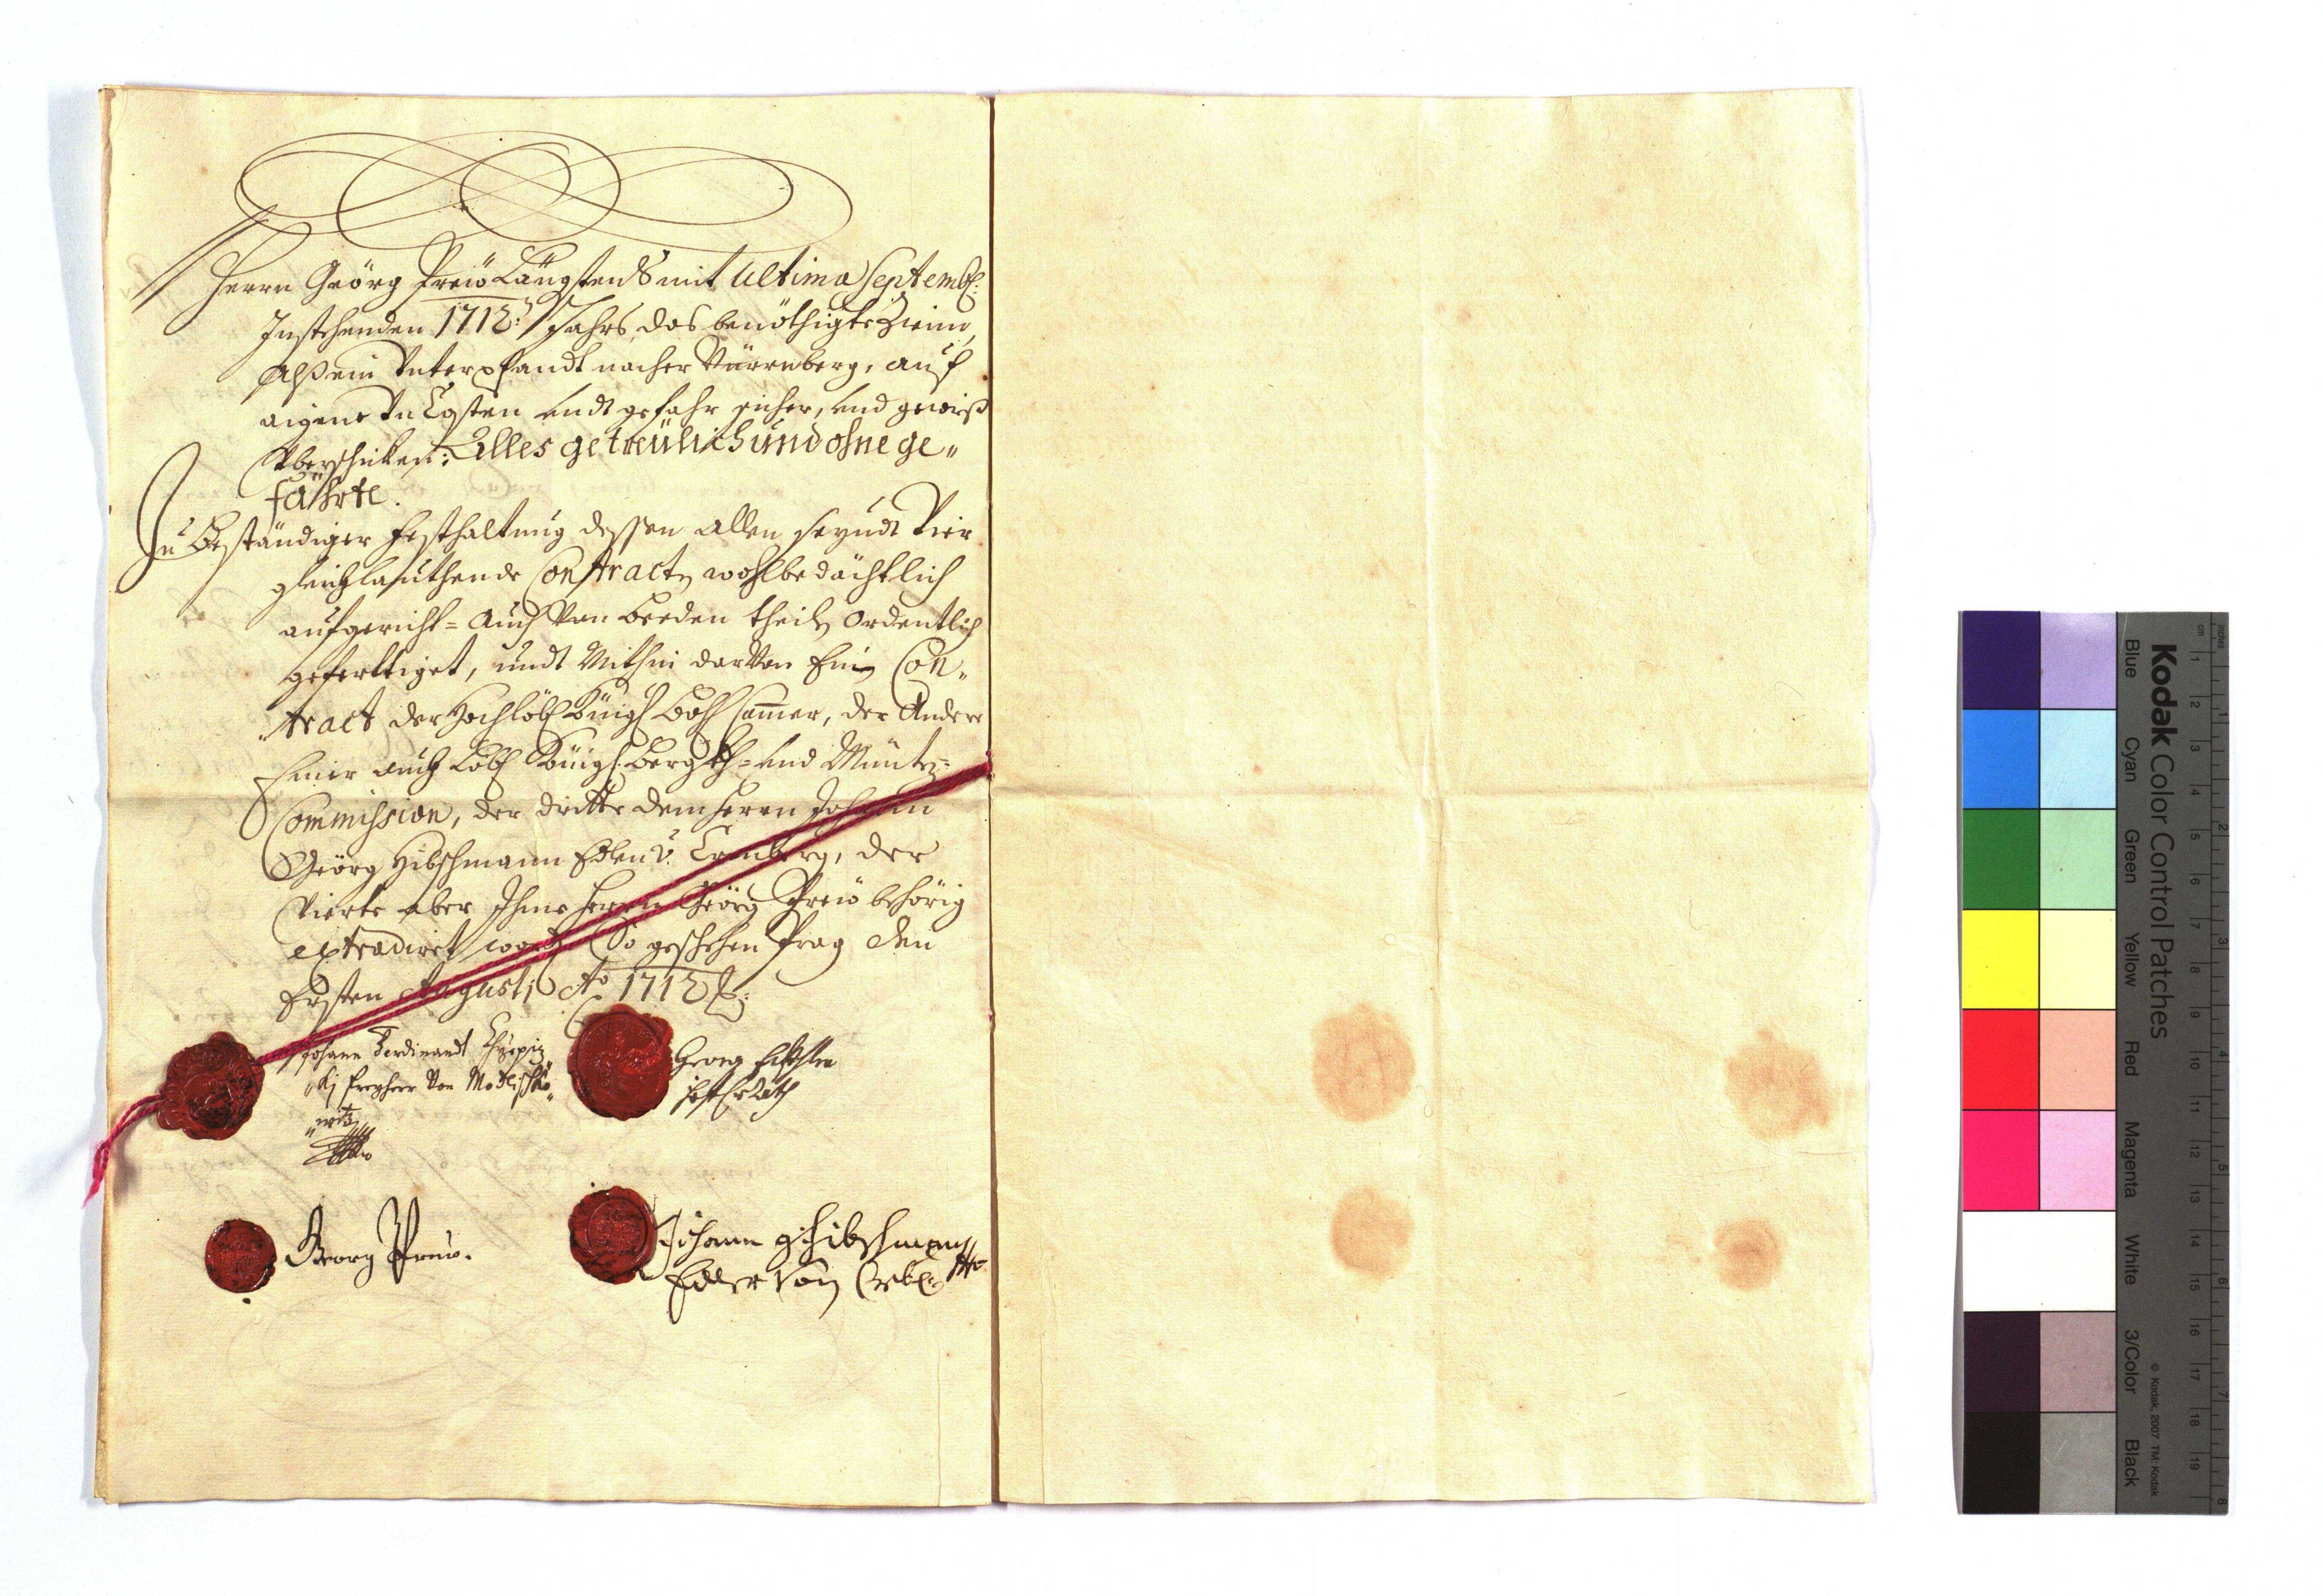 Herrn Geörg Preiß Längstens mit ultima Septemb:
Instehenden 1712: Jahrs, das benöthigte
Alß ein Unterpfandt nacher Nürrnberg, auf
aigene Unkosten undt gefahr sicher, und gewiß
Überschicken; Alles getreülich und ohne ge„
fährte.
Zu Beständiger Festhaltung dessen allen seyndt Vier
gleichlauthende Contracten wohlbedächtlich
aufgericht= auch Von beeden theilen ordentlich
gefertiget, undt Mithin darVon Ein Con„
„tract der Hochlöbl Königl Böh Cammer, der Andere
Einer auch Löbl Königl: Bergk= und Müntz=
Commission, der dritte dem Herrn Johann
Geörg Hibschmann Edlen v. , der
Vierte aber Ihme Herrn Geörg Preiß behörig
extradiret word So geschehen Prag den
Ersten Augusti Ao 1712
Johann Ferdinandt
„kj Freyherr Von
„witz
Georg

Georg Preiß.
Johann G Hibschmann
Edler Von
Kodak Color Control Patches
Blue Cyan Green Yellow Red Magenta White 3/Color Black
© Kodak, 2007 TM: Kodak
inches 1 2 3 4 5 6 7 8
cm 1 2 3 4 5 6 7 8 9 10 11 12 13 14 15 16 17 18 19